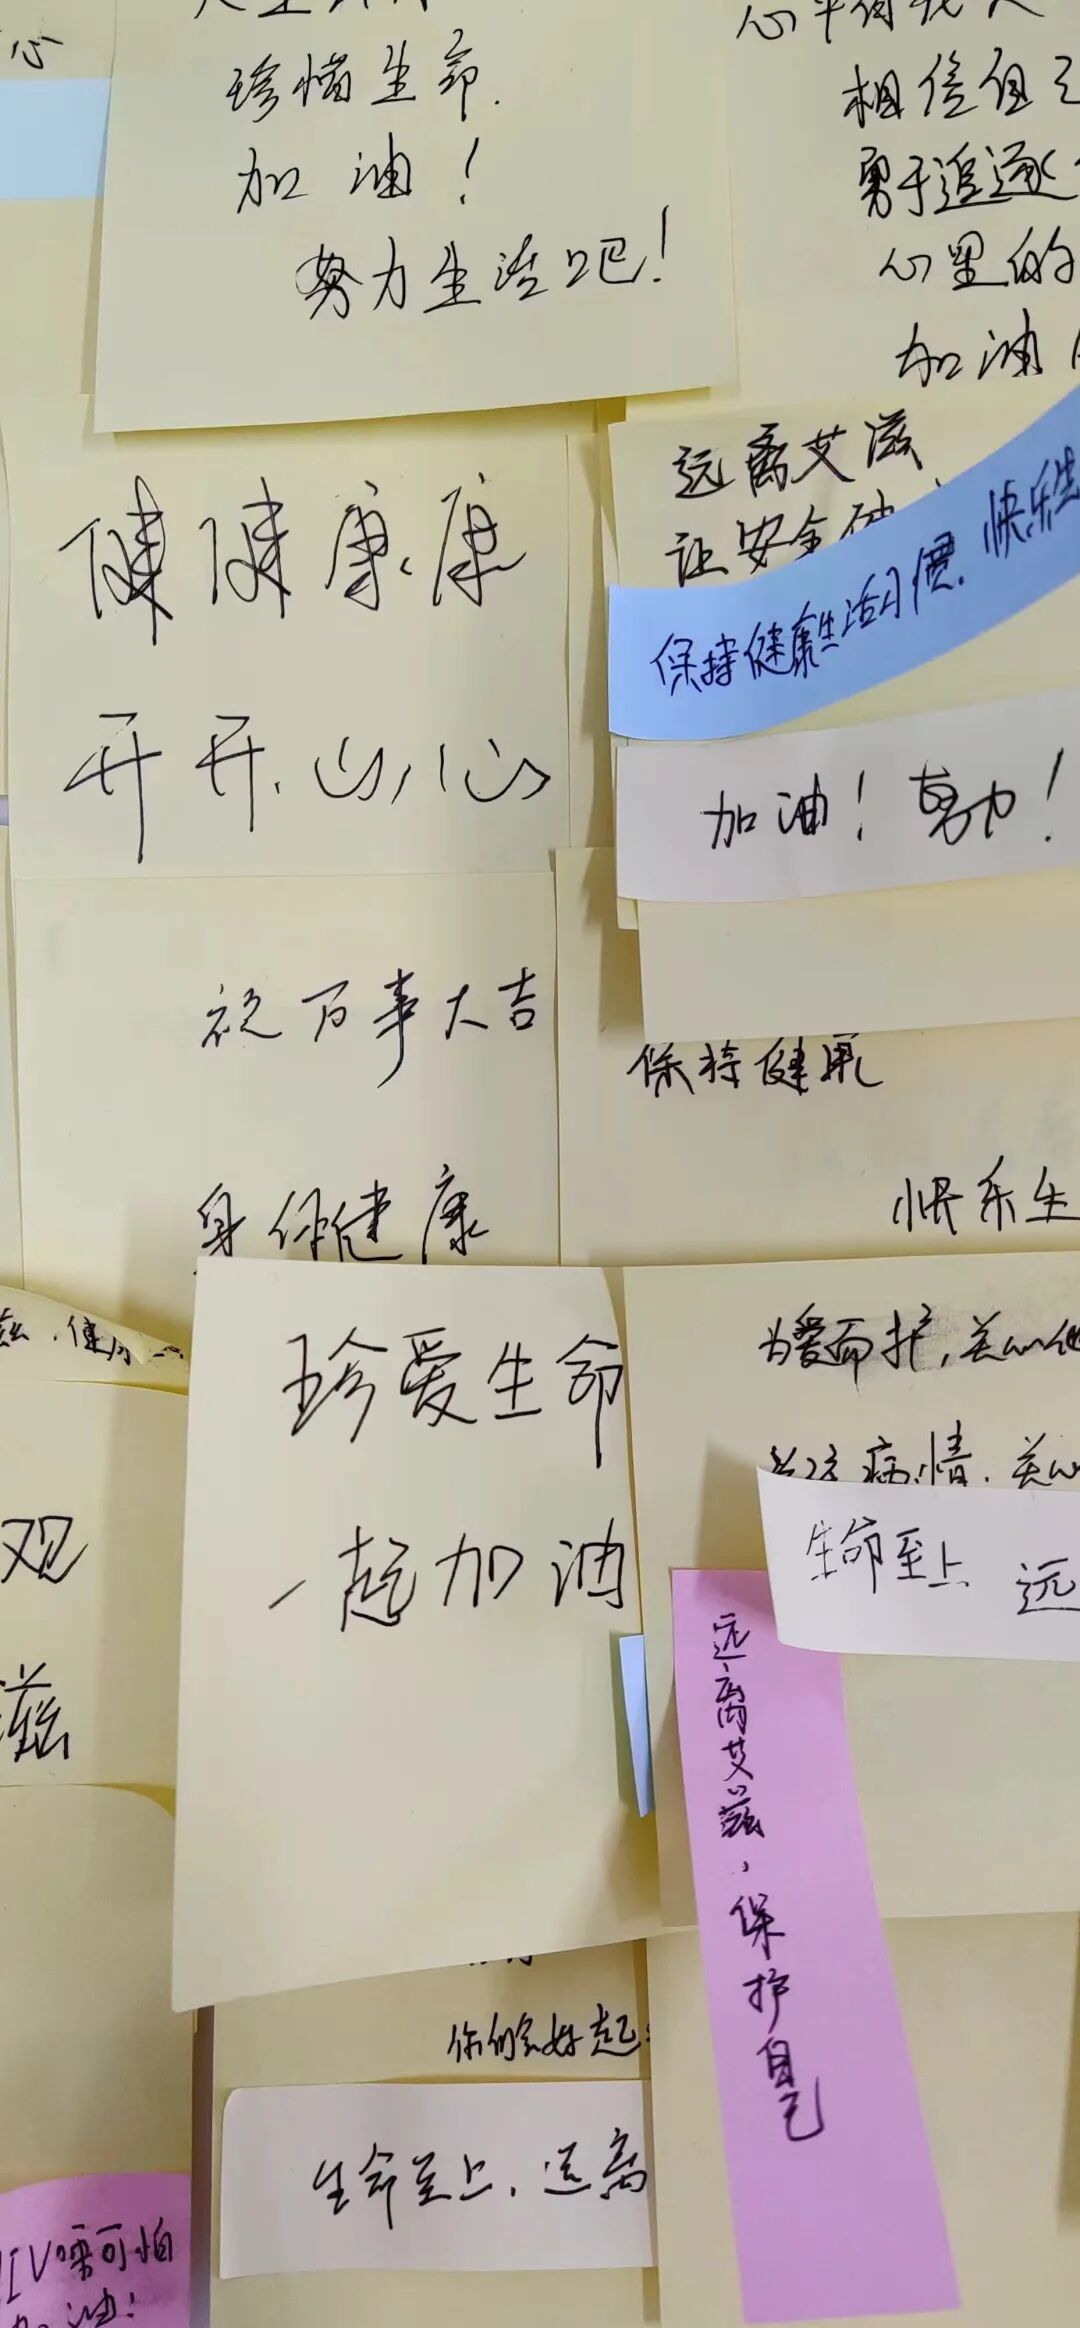 心
珍惜生命.
加油！
努力生活吧！
相信自己
勇于追逐
心里的
加油
健健康康
开开心心
远离艾滋
让安全
保持健康生活习惯.快乐生
加油！努力！
祝万事大吉
身体健康
保持健康
快乐生
珍爱生命
一起加油
为爱而护,关心他
病情.关心
生命至上 远
远离艾滋,保护自己
观
滋
你们会好起
生命至上,远离
可怕
加油!